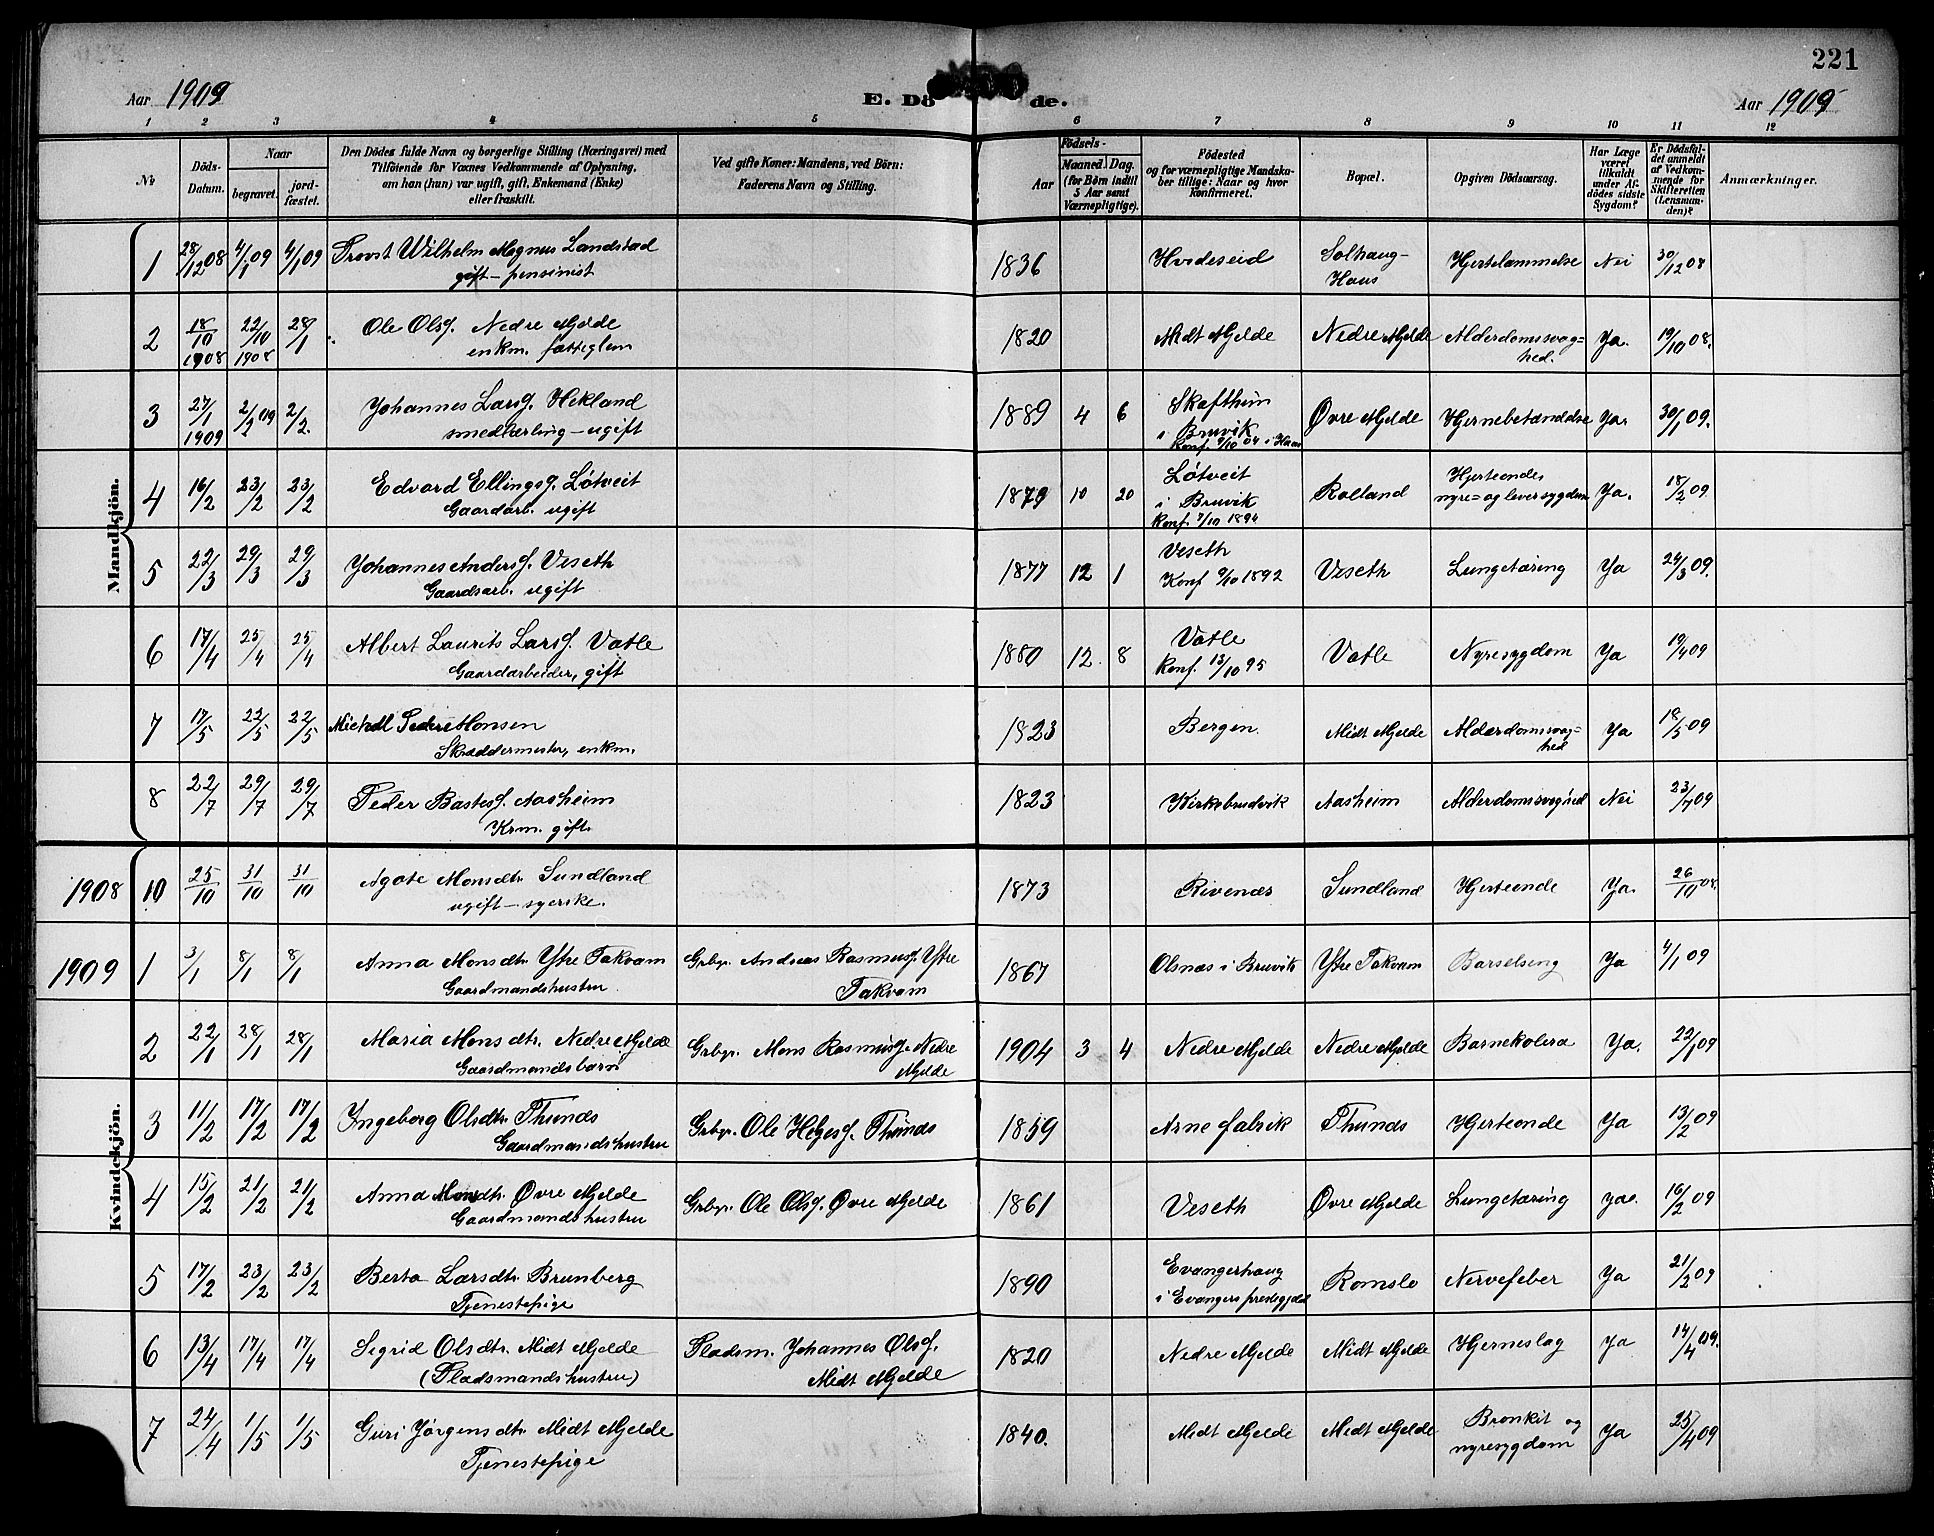 221
Aar 1909
E. Dö de.
Aar 1909
1 2 3 4 5 6 7 8 9 10 11 12
№
Döds-Datum.
Naar
begravet.
jord-fæstet.
Den Dödes fulde Navn og borgerlige Stilling (Næringsvei) med
Tilföiende for Voxnes Vedkommende af Oplysning,
om han (hun) var ugift, gift, Enkemand (Enke)
eller fraskilt.
Ved gifte Koner: Mandens, ved Börn:
Faderens Navn og Stilling.
Födsels-
Aar
Maaned. Dag.
(for Börn indtil
5 Aar samt
Værnepligtige).
Födested
og for værnepligtige Mandska-
ber tillige: Naar og hvor
konfirmeret.
Bopæl.
Opgiven Dödsaarsag.
Har Læge
været
tilkaldt
under Af-
dödes sidste
Sygdom?
Er Dödsfal-
det anmeldt
af Vedkom-
mende for
Skifteretten
(Lensman-
den)?
Anmærkninger.
Mandkjön.
1 28/12 08 4/1 09 4/1 09 Provst Wilhelm Magnus Landstad 1836 Hvideseid Solhaug- Hjertelammelse Nei 30/12 08
gift - pensionist Haus
2 18/10 1908 22/10 1908 28/1 Ole Olsf. Nedre Mjelde 1820 Midt Mjelde Nedre Mjelde Alderdomssvag= Ja. 19/10 08.
enkm. fattiglem hed.
3 27/1 1909 2/2 09 2/2. Johannes Larsf. Hekland 1889 4 6 Skaftheim Øvre Mjelde Hjernebetændelse Ja. 30/1 09.
smedlærling - ugift i Bruvik
Konf. 9/10 04 i Haus
4 16/2 23/2 23/2 Edvard Ellingsf. Løtveit 1879 10 20 Løtveit Rolland Hjerteondes Ja. 18/2 09
Gaardarb. ugift i Bruvik nyre= og leversygdom
Konf. 7/10 1894
5 22/3 29/3 29/3 Johannes Andersf. Veseth 1877 12 1 Veseth Veseth Lungetæring Ja 24/3 09.
Gaardsarb. ugift Konf 9/10 1892
6 17/4 25/4 25/4 Albert Laurits Larsf. Vatle 1880 12. 8 Vatle Vatle Nyresygdom Ja 19/4 09
Gaardarbeider, gift Konf. 13/10 95
7 17/5 22/5 22/5 Michael Peder Monsen 1823 Bergen. Midt Mjelde Alderdomssvag= Ja 18/5 09
Skræddermester, enkm. hed
8 22/7 29/7 29/7 Peder Bastesf. Aasheim 1823 Kirkebrudvik Aasheim Alderdomssvaghed Nei 23/7 09
Krm. gift.
Kvindekjön.
1908 10 25/10 31/10 31/10 Agate Monsdtr. Sundland 1873 Rivenæs Sundland Hjerteonde Ja. 26/10 08.
ugift - syerske.
1909 1 3/1 8/1 8/1 Anna Monsdtr. Ytre Takvam Grbgr. Andreas Rasmusf. Ytre 1867 Olsnæs i Bruvik Ytre Takvam Barselseng Ja 4/1 09
Gaardmandshustru. Takvam
2 22/1 28/1 28/1 Maria Monsdtr. Nedre Mjelde Grbgr. Mons Rasmusf. Nedre 1904 3 4 Nedre Mjelde Nedre Mjelde Barnekolera Ja. 22/1 09
Gaardmandsbarn Mjelde
3 11/2 17/2 17/2 Ingeborg Olsdtr. Thunes Grbgr. Ole Helgesf. Thunes 1859 Arne fabrik Thunes Hjerteonde Ja 13/2 09
Gaardmandshustru
4 15/2 21/2 21/2 Anna Monsdtr. Øvre Mjelde Grbgr. Ole Olsf. Øvre Mjelde 1861 Veseth Øvre Mjelde Lungetæring Ja. 16/2 09
Gaardmandshustru
5 17/2 23/2 23/2 Berta Larsdtr. Brunberg 1890 Evangerhaug Romslo Nervefeber Ja 21/2 09
Tjenestepige i Evangers prestegjeld
6 13/4 17/4 17/4 Sigrid Olsdtr. Midt Mjelde Pladsm. Johannes Olsf. 1820 Nedre Mjelde Midt Mjelde Hjerneslag Ja 14/4 09.
(Pladsmandshustru) Midt Mjelde
7 24/4 1/5 1/5 Guri Jørgensdtr. Midt Mjelde 1840. Midt Mjelde Midt Mjelde Bronkit og Ja 25/4 09
Tjenestepige nyresygdom